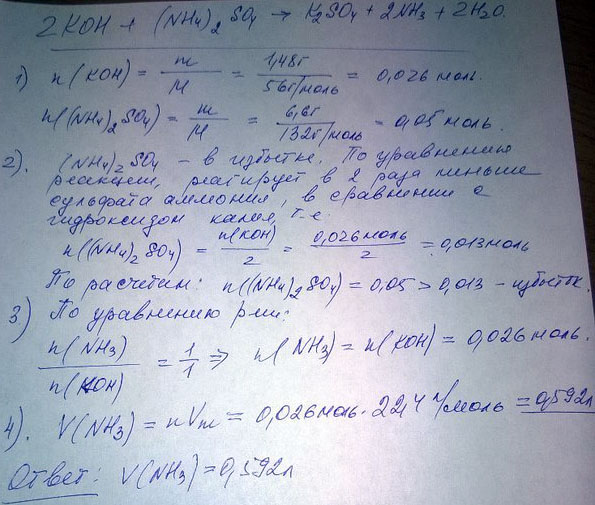 2KOH + (NH4)2SO4 → K2SO4 + 2NH3 + 2H2O.
1) n(KOH) = m/M = 1,48г/56г/моль = 0,026 моль.
n((NH4)2SO4) = m/M = 6,6г/132г/моль = 0,05 моль.
2). (NH4)2SO4 – в избытке. По уравнению
реакции, реагирует в 2 раза меньше
сульфата аммония, в сравнении с
гидроксидом калия, т.е.
n((NH4)2SO4) = n(KOH)/2 = 0,026моль/2 = 0,013моль
По расчётам: n((NH4)2SO4) = 0,05 > 0,013 – избыток.
3) По уравнению р-ии:
n(NH3)/n(KOH) = 1/1 ⇒ n(NH3) = n(KOH) = 0,026моль.
4). V(NH3) = nVm = 0,026моль · 22,4 л/моль = 0,592л
Ответ: V(NH3) = 0,592л